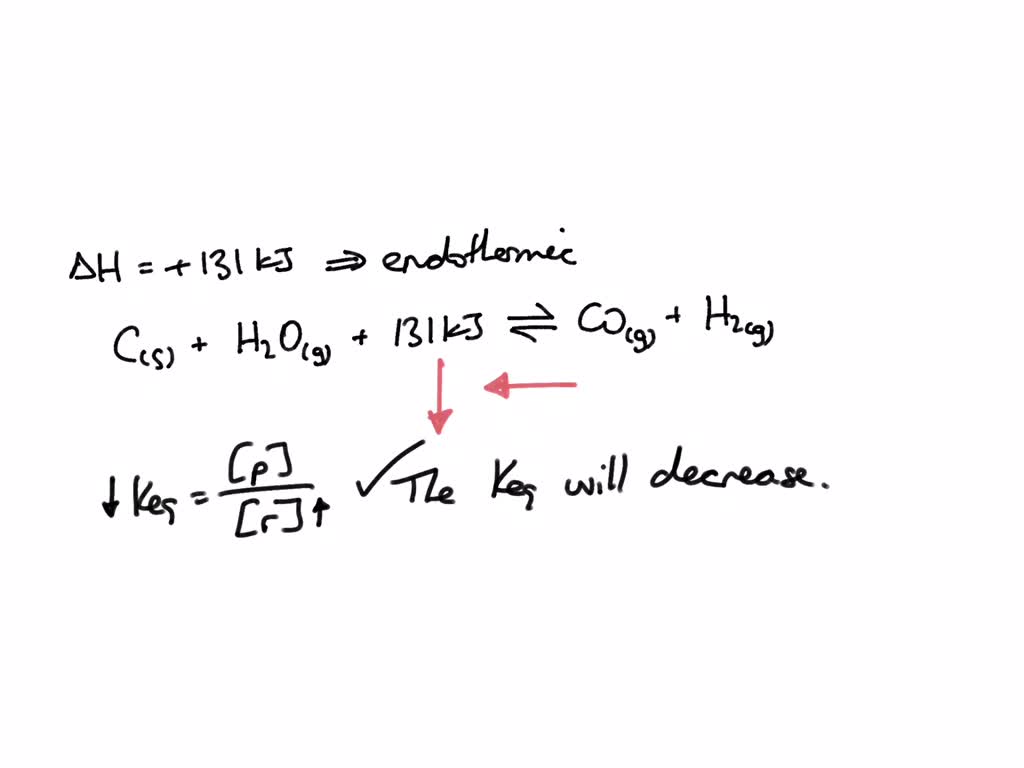 ΔH = +131 kJ ⇒ endothermic
C(s) + H₂O(g) + 131 kJ ⇌ CO(g) + H₂(g)
↓ Keq = [p]/[r]↑ ✓ The Keq will decrease.